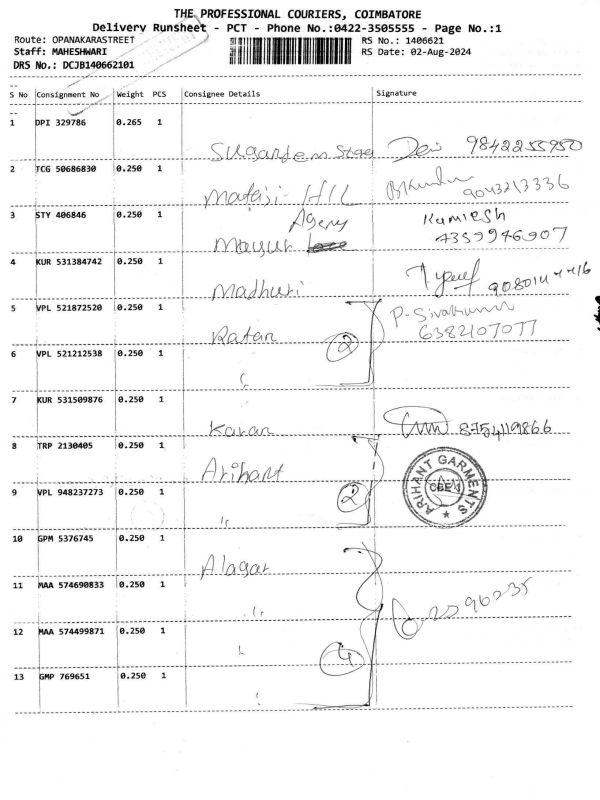 THE PROFESSIONAL COURIERS, COIMBATORE
Delivery Runsheet - PCT - Phone No.:0422-3505555 - Page No.:1
Route: OPANAKARASTREET
RS No.: 1406621
Staff: MAHESHWARI
RS Date: 02-Aug-2024
DRS No.: DCJB140662101
S No Consignment No Weight PCS Consignee Details Signature
1 DPI 329786 0.265 1
9842255950
2 TCG 50686830 0.250 1
9043213336
3 STY 406846 0.250 1
Agency Kamlesh
Mayur 4359946907
4 KUR 531384742 0.250 1
Madhuri
5 VPL 521872520 0.250 1
P. Sivakumar
Ratan 2 6382107077
6 VPL 521212538 0.250 1
7 KUR 531509876 0.250 1
Karan 8754119866
8 TRP 2130405 0.250 1
Arihant
ARIHANT GARMENTS
CBE 1
9 VPL 948237273 0.250 1
2
10 GPM 5376745 0.250 1
Alagar
11 MAA 574690833 0.250 1
12 MAA 574499871 0.250 1
4
13 GMP 769651 0.250 1